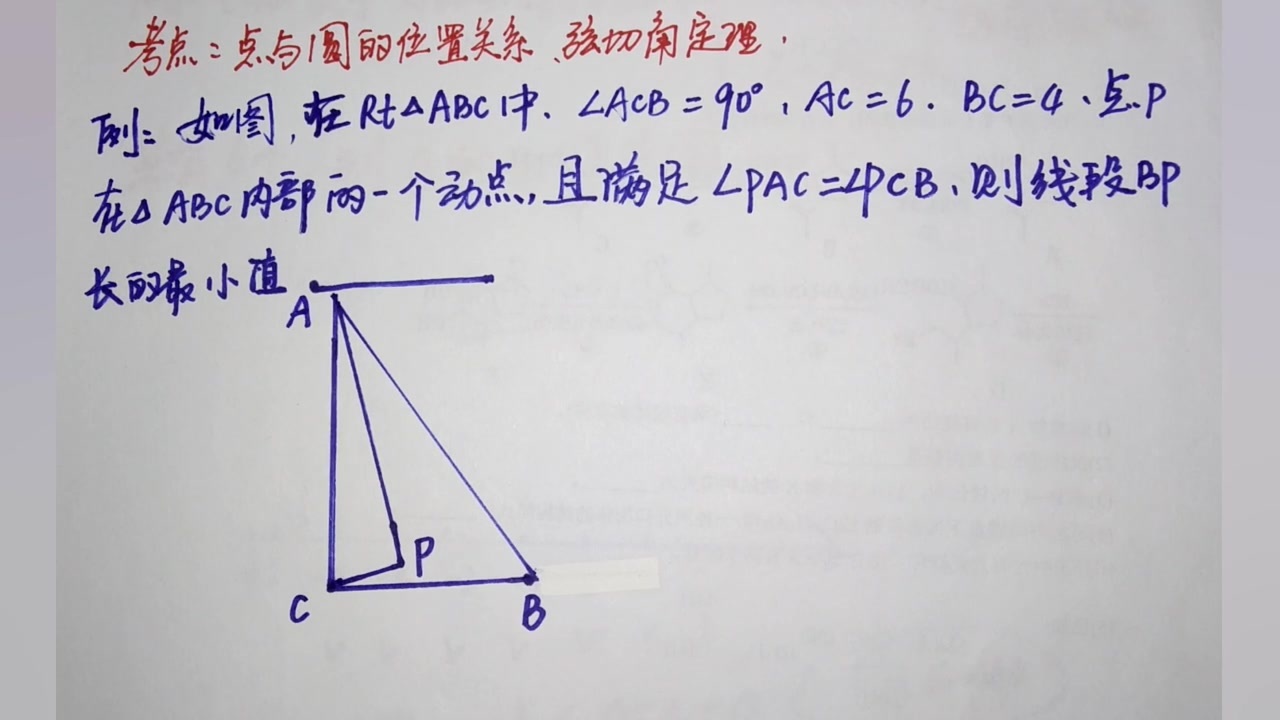 考点：点与圆的位置关系、弦切角定理.
例：如图,在Rt△ABC中.∠ACB=90°,AC=6.BC=4、点P
在△ABC内部的一个动点,且满足∠PAC=∠PCB、则线段BP
长的最小值
A
P
C
B